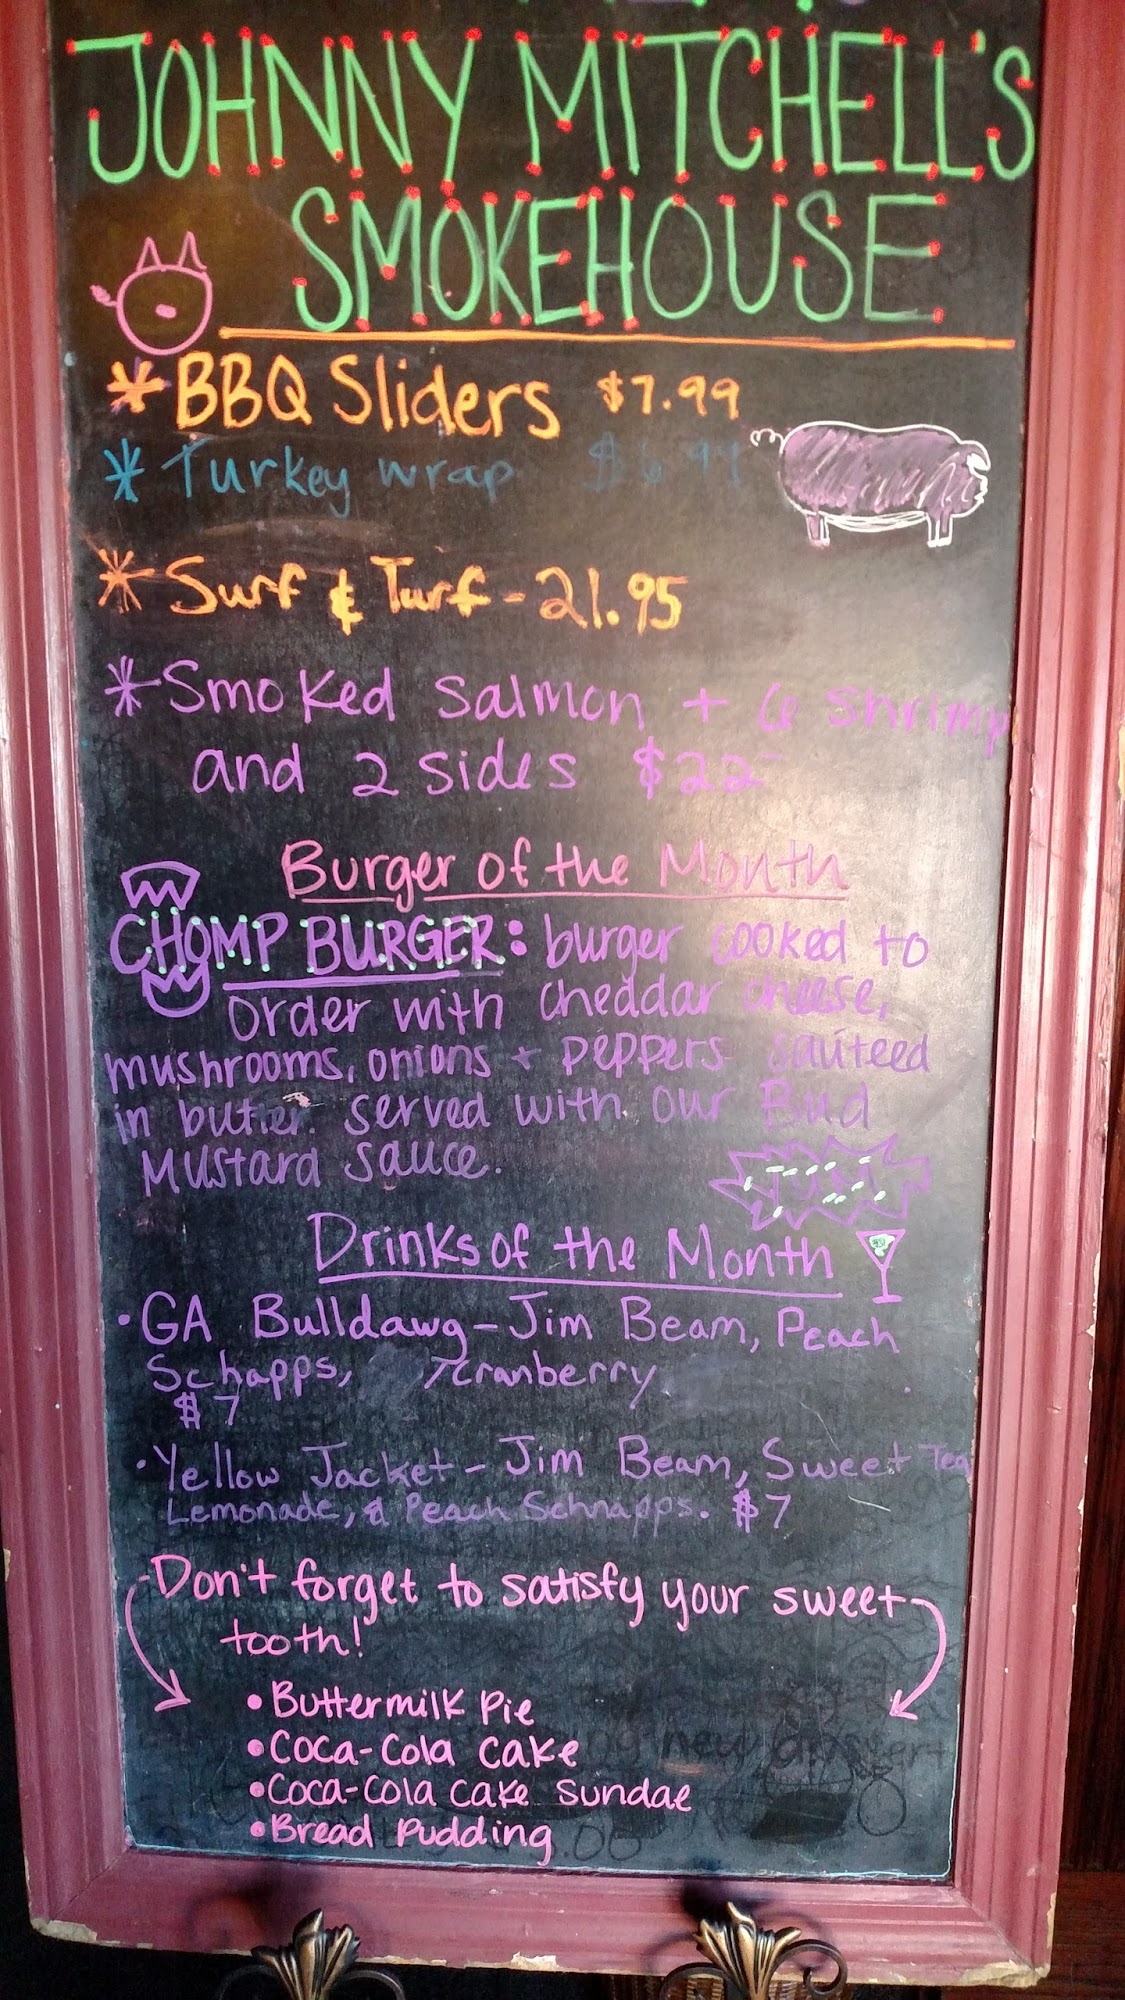 JOHNNY MITCHELL'S
SMOKEHOUSE
* BBQ Sliders $7.99
* Turkey wrap $6.99
* Surf & Turf - 21.95
* Smoked Salmon + 6 shrimp
and 2 sides $22
Burger of the Month
CHOMP BURGER: burger cooked to
order with cheddar cheese,
mushrooms, onions + peppers sauteed
in butter. served with our Bud
Mustard sauce.
Drinks of the Month
• GA Bulldawg - Jim Beam, Peach
Schapps, cranberry
$7
• Yellow Jacket - Jim Beam, Sweet Tea
Lemonade, & Peach Schnapps. $7
Don't forget to satisfy your sweet
tooth!
• Buttermilk Pie
• Coca-Cola cake
• Coca-Cola cake sundae
• Bread Pudding